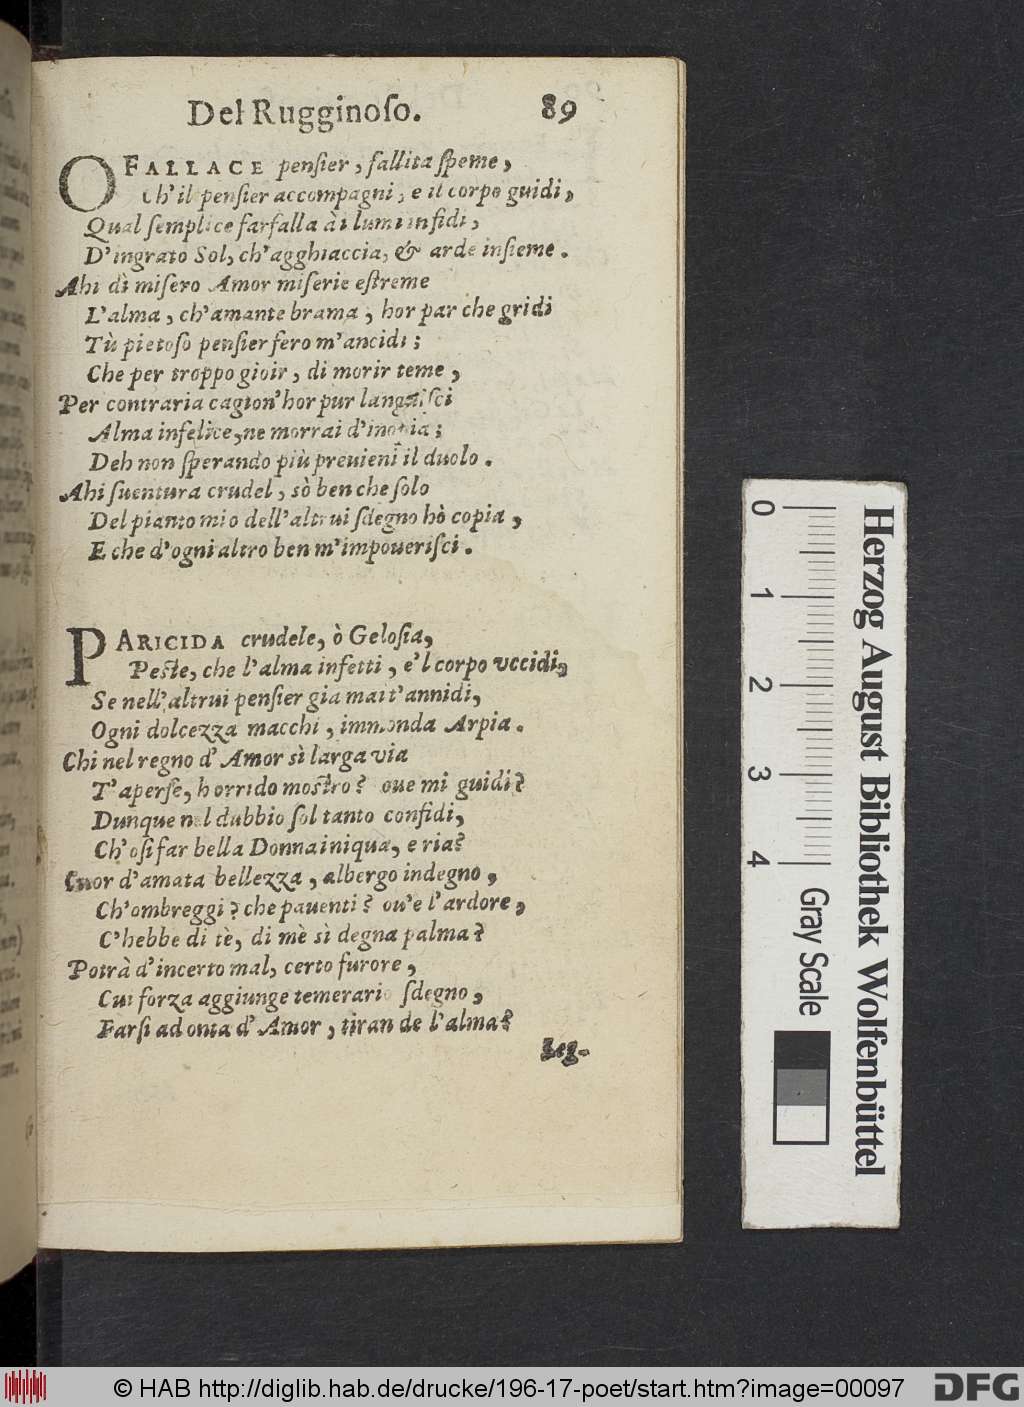 Del Rugginoſo. 89
O FALLACE penſier, fallita ſpeme,
Ch'il penſier accompagni, e il corpo guidi,
Qual ſemplice farfalla à i lumi infidi,
D'ingrato Sol, ch'agghiaccia, & arde inſieme.
Ahi dì miſero Amor miſerie eſtreme
L'alma, ch'amante brama, hor par che gridi
Tù pietoſo penſier fero m'ancidi;
Che per troppo gioir, di morir teme,
Per contraria cagion'hor pur languiſci
Alma infelice, ne morrai d'inopia;
Deh non ſperando più preuieni il duolo.
Ahi ſuentura crudel, sò ben che ſolo
Del pianto mio dell'altrui ſdegno hò copia,
E che d'ogni altro ben m'impoueriſci.
PARICIDA crudele, ò Geloſia,
Peſte, che l'alma infetti, e'l corpo vccidi,
Se nell'altrui penſier gia mai t'annidi,
Ogni dolcezza macchi, immonda Arpia.
Chi nel regno d'Amor sì larga via
T'aperſe, horrido moſtro? oue mi guidi?
Dunque nel dubbio ſol tanto confidi,
Ch'oſi far bella Donna iniqua, e ria?
Cuor d'amata bellezza, albergo indegno,
Ch'ombreggi? che pauenti? ou'e l'ardore,
C'hebbe di tè, di mè sì degna palma?
Potrà d'incerto mal, certo furore,
Cui forza aggiunge temerario ſdegno,
Farſi ad onta d'Amor, tiran de l'alma?
Leg-
Herzog August Bibliothek Wolfenbüttel
0 1 2 3 4 Gray Scale
© HAB http://diglib.hab.de/drucke/196-17-poet/start.htm?image=00097
DFG